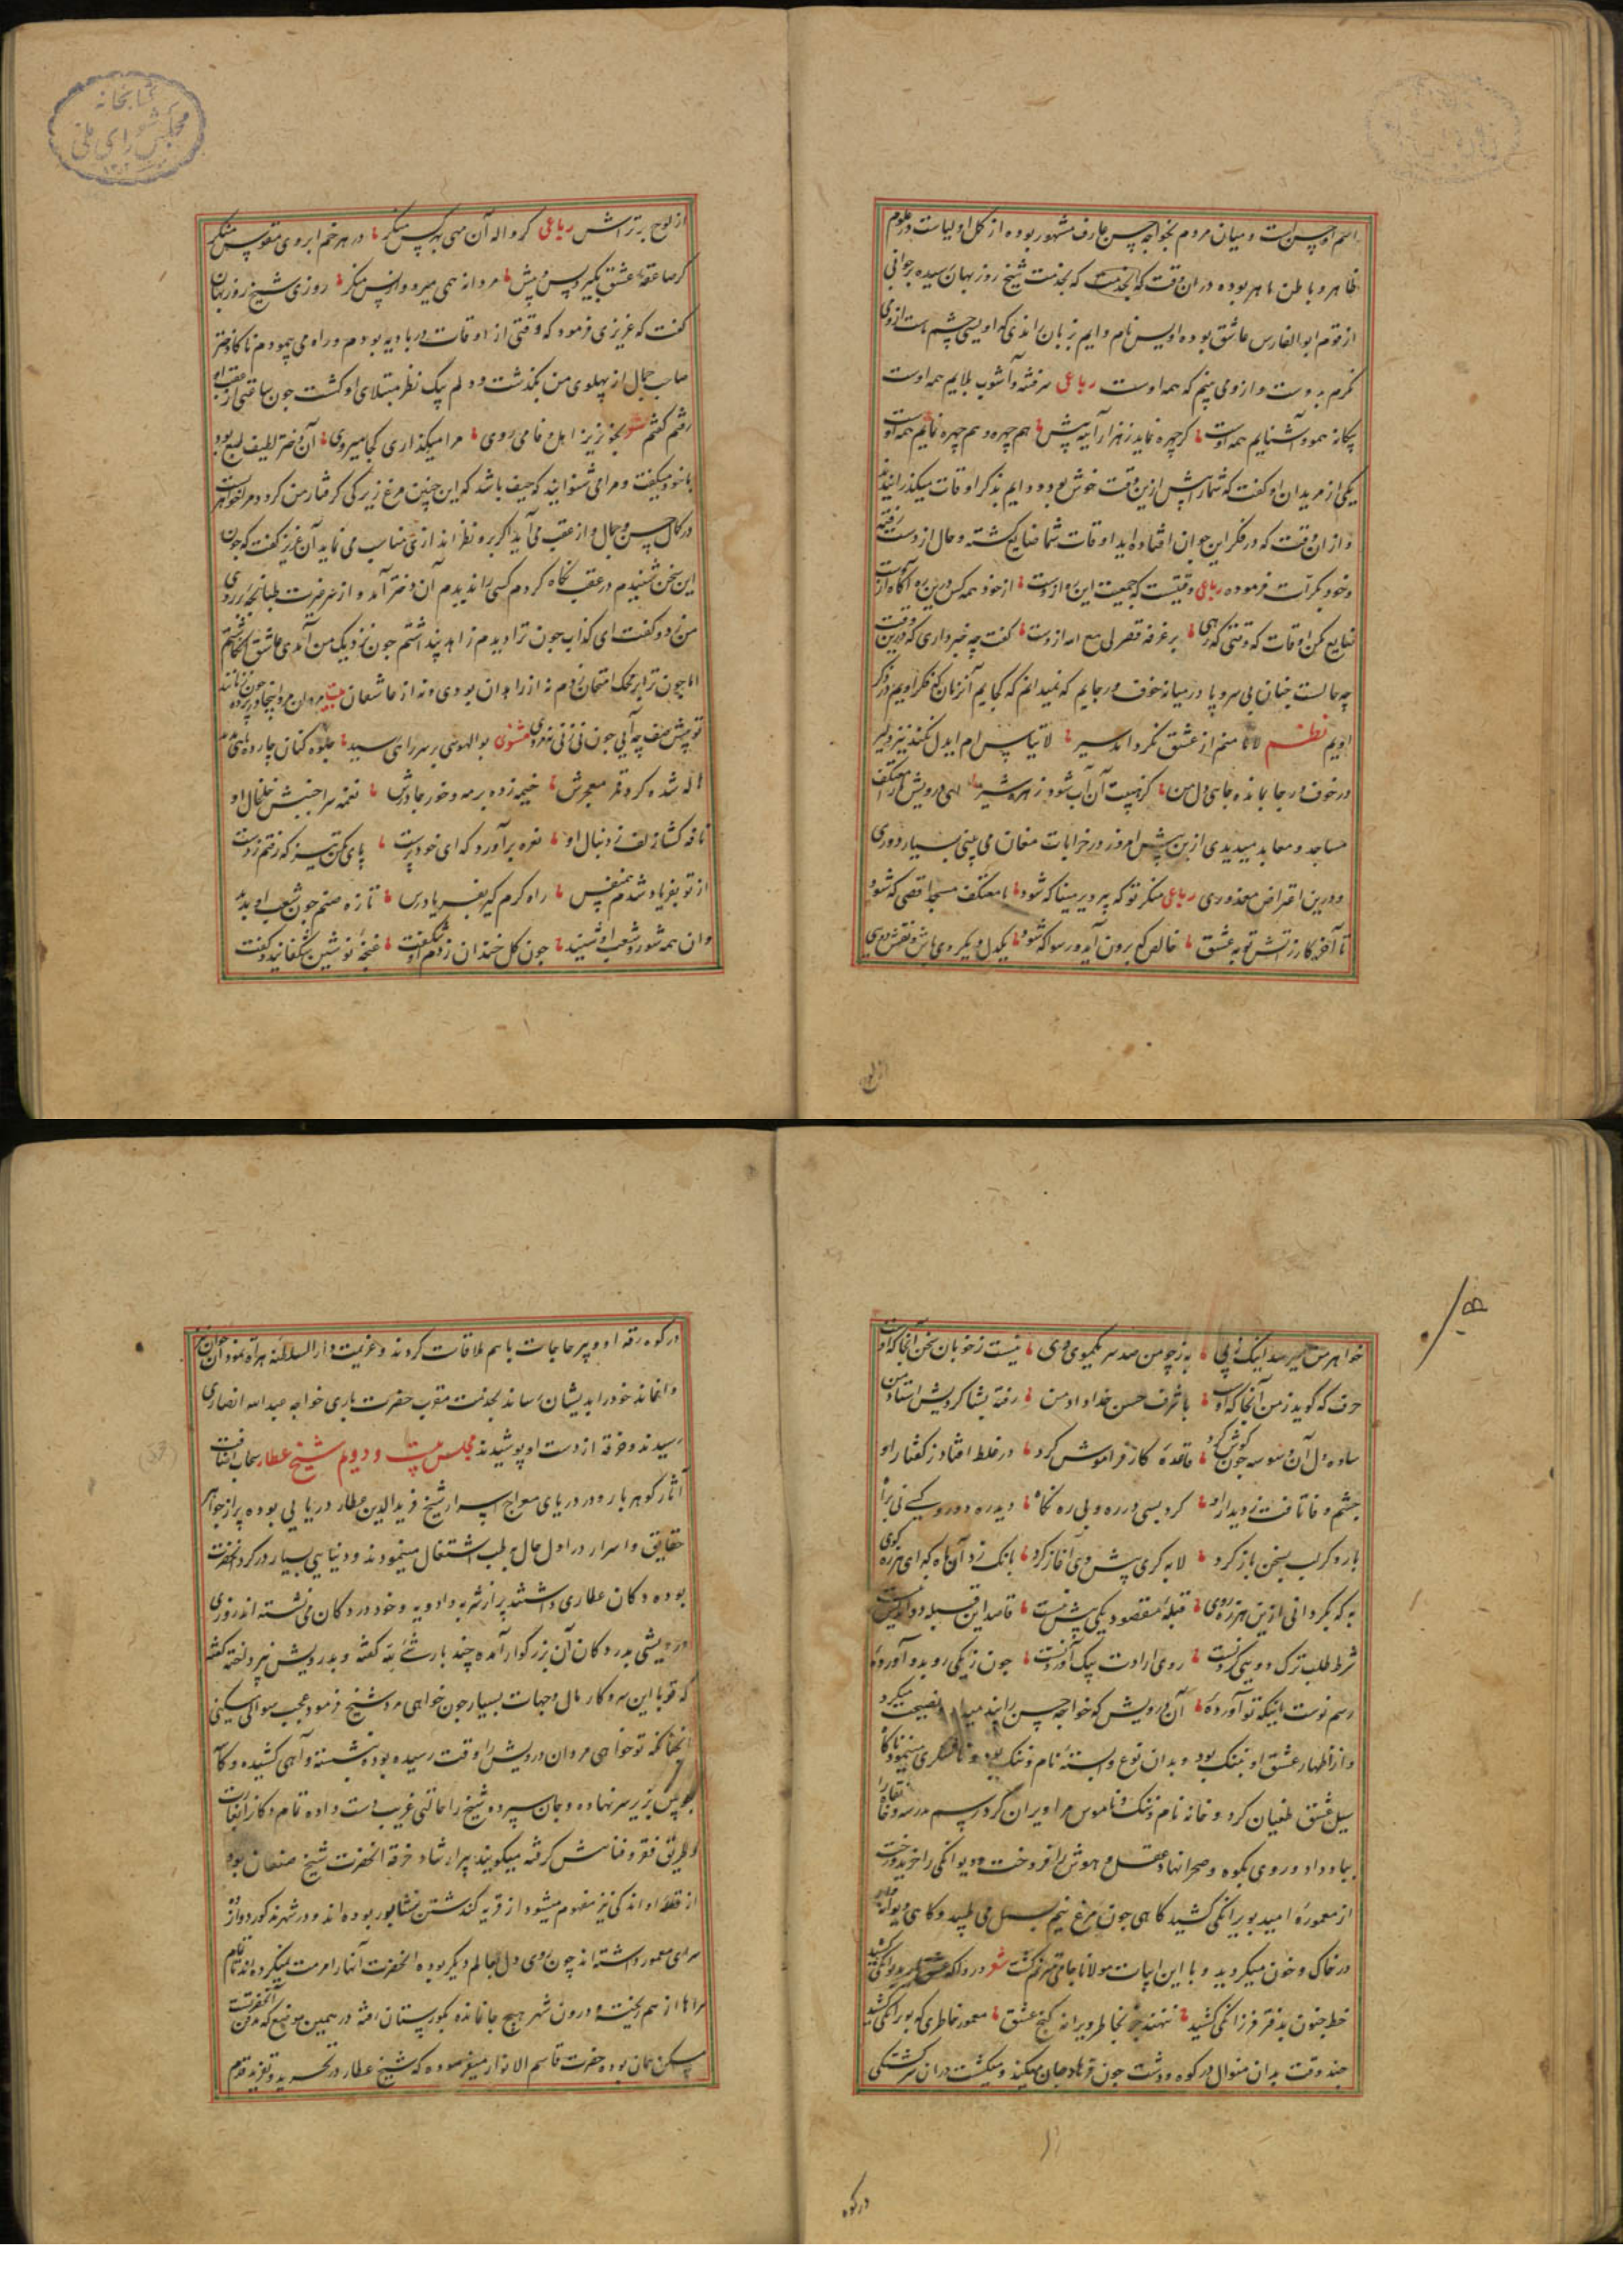 کتابخانه
مجلس شورای ملی
اسم او حسن است و میان مردم بخواجه حسن عارف مشهور بوده از کمل اولیاست در علوم
ظاهر و باطن ماهر بوده در ان وقت که بخدمت شیخ روزبهان رسیده بر جوانی
از قوم ابو الفارس عاشق بوده اویس نام و ایم بزبان راندی که اویسی چشم ماست از وی
نگرم بدوست و از و می بینم که همه اوست رباعی سر فتنه و آشوب بلایم همه اوست
بیکانه همو و آشنایم همه اوست کر چهره نماید ز هزار آینه پیش هم چهره و هم چهره نمایم همه اوست
یکی از مریدان او کفت که شما را پیش ازین وقت خوش بود و دایم بذکر اوقات میکذرانیدید
و از ان وقت که در فکر این جوان افتاده اید اوقات شما ضایع کشته و حال از دست رفته
وخود بکرات فرموده رباعی وقتیست که جمعیت این ره ازوست از خود همه کس درین ره آکاه ازوست
ضایع مکن اوقات که وقتی که رهی بر غرفه قصر لی مع الله ازوست کفت چه خبر داری که درین وقت
چه حالست چنان بی سر و پا در میانه خوف و رجایم که نمیدانم که کجایم آنزمان که فکر اویم در ذکر
اویم نظم لانا منم از عشق نکرو اند سیر
در خوف و رجا بمانده جای دل من کز هیبت آن آب شود زهره شیر ای درویش مرا معتکف
مساجد و معابد میدیدی ازین پیش امروز در خرابات مغان می بینی بسیار دوری
و درین اعتراض معذوری رباعی منکر تو که پیر دیر مینا که شود یا معتکف مسجد اقصی که شود
تا آخر کار ز آتش توبه عشق خالص که برون آید و رسوا که شود یکدل و یکروی باش و نقش دویی
از لوح
از لوح بتراش رباعی کر واله آن مهی بهر کس منکر در هر خم ابروی مقوس منکر
کر صاعقه عشق بکیرد پس و پیش مردانه همی میرو و از پس منکر روزی شیخ روزبهان
کفت که عزیزی فرمود که وقتی از اوقات در بادیه بودم و راه می پیمودم ناکاه دختر
صاحب جمال از پهلوی من بکذشت و دلم بیک نظر مبتلای او کشت چون ساعتی از عقب او
رفتم کفتم شعر بجویز اهل وفا می روی مرا میکذاری کجا میروی آن دختر لطیف لب بود
با خود میکفت و مرا می شنوانید که حیف باشد که این چنین مرغ زیرکی کرفتار من کردد مرا خواهریست
در کمال حسن و جمال و از عقب می آید اکر برو نظر اندازی مناسب می نماید آن عزیز کفت که چون
این سخن شنیدم در عقب نکاه کردم کسی را ندیدم آن دختر آمد و از سر ضربت طبانچه بر روی
من زد و کفت ای کذاب چون ترا دیدم زاهد پنداشتم چون نزدیک من آمدی عاشق انکاشتم
اما چون ترا بر محک امتحان زدم نه از زاهدان بودی و نه از عاشقان بیت
تو پیش صف چه آیی چون نی زنی نه مردی مثنوی بوالهوسی بر سر راهی رسید جلوه کنان چارده ماهی
اله شده کرد قمر معجرش خیمه زده بر مه و خور چادرش نغمه سرا جنبش خلخال او
نافه کشا زلف ز دنبال او نعره برآورد که ای خود پرست پای بکن تیز که رفتم ز دست
از تو بفریاد شدم همنفس راه کرم کیر بفریاد رس تازه صنم چون شعب او بدید
وان همه شور و شعب او شنید چون کل خندان ز دم او شکفت غنچه نوشین بشکفانید و کفت
خواهر من میرسد اینک ز پی به ز چو من صد سر یکموی وی نیست ز خوبان سخن آنجا که اوست
حرف که کوید ز من آنجا که اوست با شرف حسن خداداد من رفته بشاکردیش استاد من
ساده دل آن وسوسه چون کوش کرد قاعده کار فراموش کرد در غلط افتاد ز کفتار او
چشم وفا تافت ز دیدار او کرد بسی در ره و بی ره نکاه دیده دوروی کسی نی براه
بار دکر لب بسخن باز کرد لابه کری پیش وی آغاز کرد بانک زد آن ماه که ای هرزه کوی
به که بکردانی ازین هرزه روی قبله مقصود یکی پیش نیست
شرط طلب ترک دویی کردنست روی ارادت بیک آوردنست چون ز یکی رو بدو آورده
رسم نوست اینکه تو آورده آن درویش که خواجه حسن را نصیحت میکرد
و از اظهار عشق او بتنک بود و بدان نوع وابسته نام و ننک بود
سیل عشق طغیان کرد و خانه نام و ننک و ناموس مرا ویران کرد رسم مدرسه و خانقاه را
بباد داد و روی بکوه و صحرا نهاد عقل و هوش را فروخت و دیوانکی را خرید و رخت
از معموره امید بویرانکی کشید کاهی چون مرغ نیم بسمل می طپید و کاهی دیوانه وار
در خاک و خون میکردید و با این ابیات مولانا جامی مترنم کشت شعر دردا که عشق یار بدیوانکی کشید
خط جنون بدفتر فرزانکی کشید ننهند جز بخاطر ویرانه کنج عشق معمور خاطری که بویرانکی کشید
چند وقت بدان منوال در کوه و دشت چون فرهاد جان میکند و میکشت در ان سرکشتکی
در کوه
در کوه رقه او و پیر حاجات باهم ملاقات کردند و عزیمت دار السلطنه هراة نمود آن جوان نیز
و انخانه خود را بدیشان رساند بخدمت مقرب حضرت باری خواجه عبد الله انصاری
رسیدند و خرقه از دست او پوشیدند مجلس بیست و دویم شیخ عطار سحاب التفات
آثار کوهر بار و در دریای معراج اسرار شیخ فرید الدین عطار دریایی بوده پر از جواهر
حقایق و اسرار در اول حال بطب اشتغال مینمودند و دنیایی بسیار در کرد آنحضرت
بوده دکان عطاری داشتند پر از شربه و ادویه و خود در دکان می نشسته اند روزی
درویشی بدر دکان آن بزرکوار آمده چند بار شئ لله کفته و بدرویش نپرداخته کفته
که تو با این سر و کار مال و جهات بسیار چون خواهی مرد شیخ فرمود عجب سوالی میکنی
آنچنانکه تو خواهی مرد ان درویش را وقت رسیده بود نشسته و آهی کشیده و کاسه
چوبین بزیر سر نهاده و جان سپرده شیخ را حالتی غریب دست داده تمام دکان را بغارت
و طریق فقر و فنا پیش کرفته میکویند پیر ارشاد خرقه آنحضرت شیخ صنعان بوده
از قریه کدشتن نشابور بوده اند و در شهر مذکور دوازده
سرای معمور داشته اند چون روی دل بعالم دیکر بوده آنحضرت آنها را مرمت نمیکرده اند تمام
سراها از هم ریخته و درون شهر هیچ جا نمانده بکورستان رفته در همین موضع که مدفن آنحضرتست
مسکن همان بوده حضرت قاسم الانوار میفرموده که شیخ عطار در تجرید و تفرید قدم